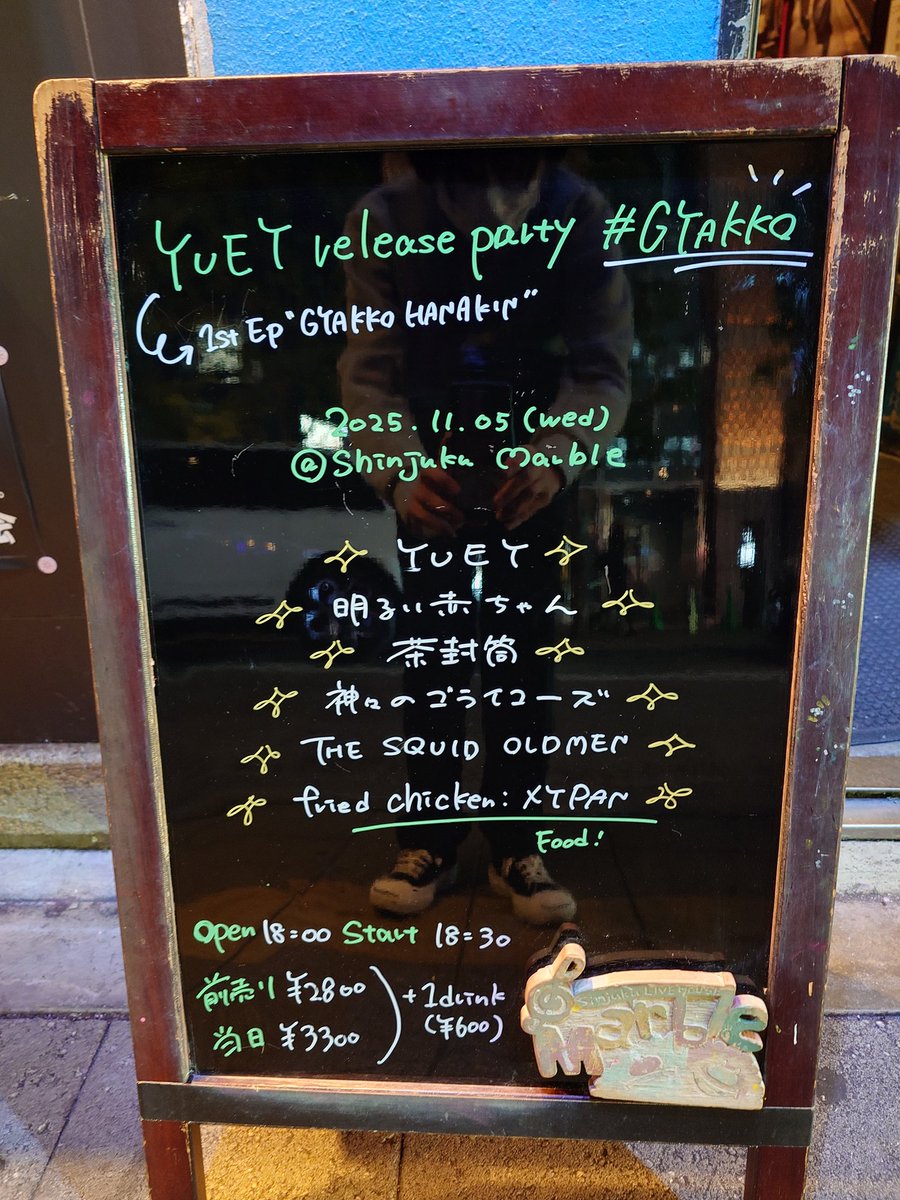 YUEY release party #GYAKKO
1st Ep "GYAKKO HANAKIN"
2025.11.05 (wed)
@Shinjuku Marble
YUEY
明るい赤ちゃん
茶封筒
神々のゴライコーズ
THE SQUID OLDMEN
fried chicken: XYPAN
Food!
Open 18:00 Start 18:30
前売り ¥2800
当日 ¥3300
+1drink
(¥600)
Shinjuku LIVE HOUSE
Marble